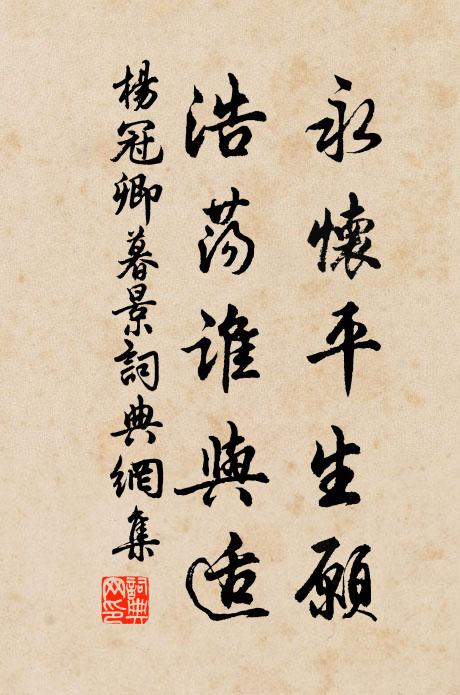 永懷平生願
浩蕩誰與適
楊冠卿暮景詞典網集
詞典
網印